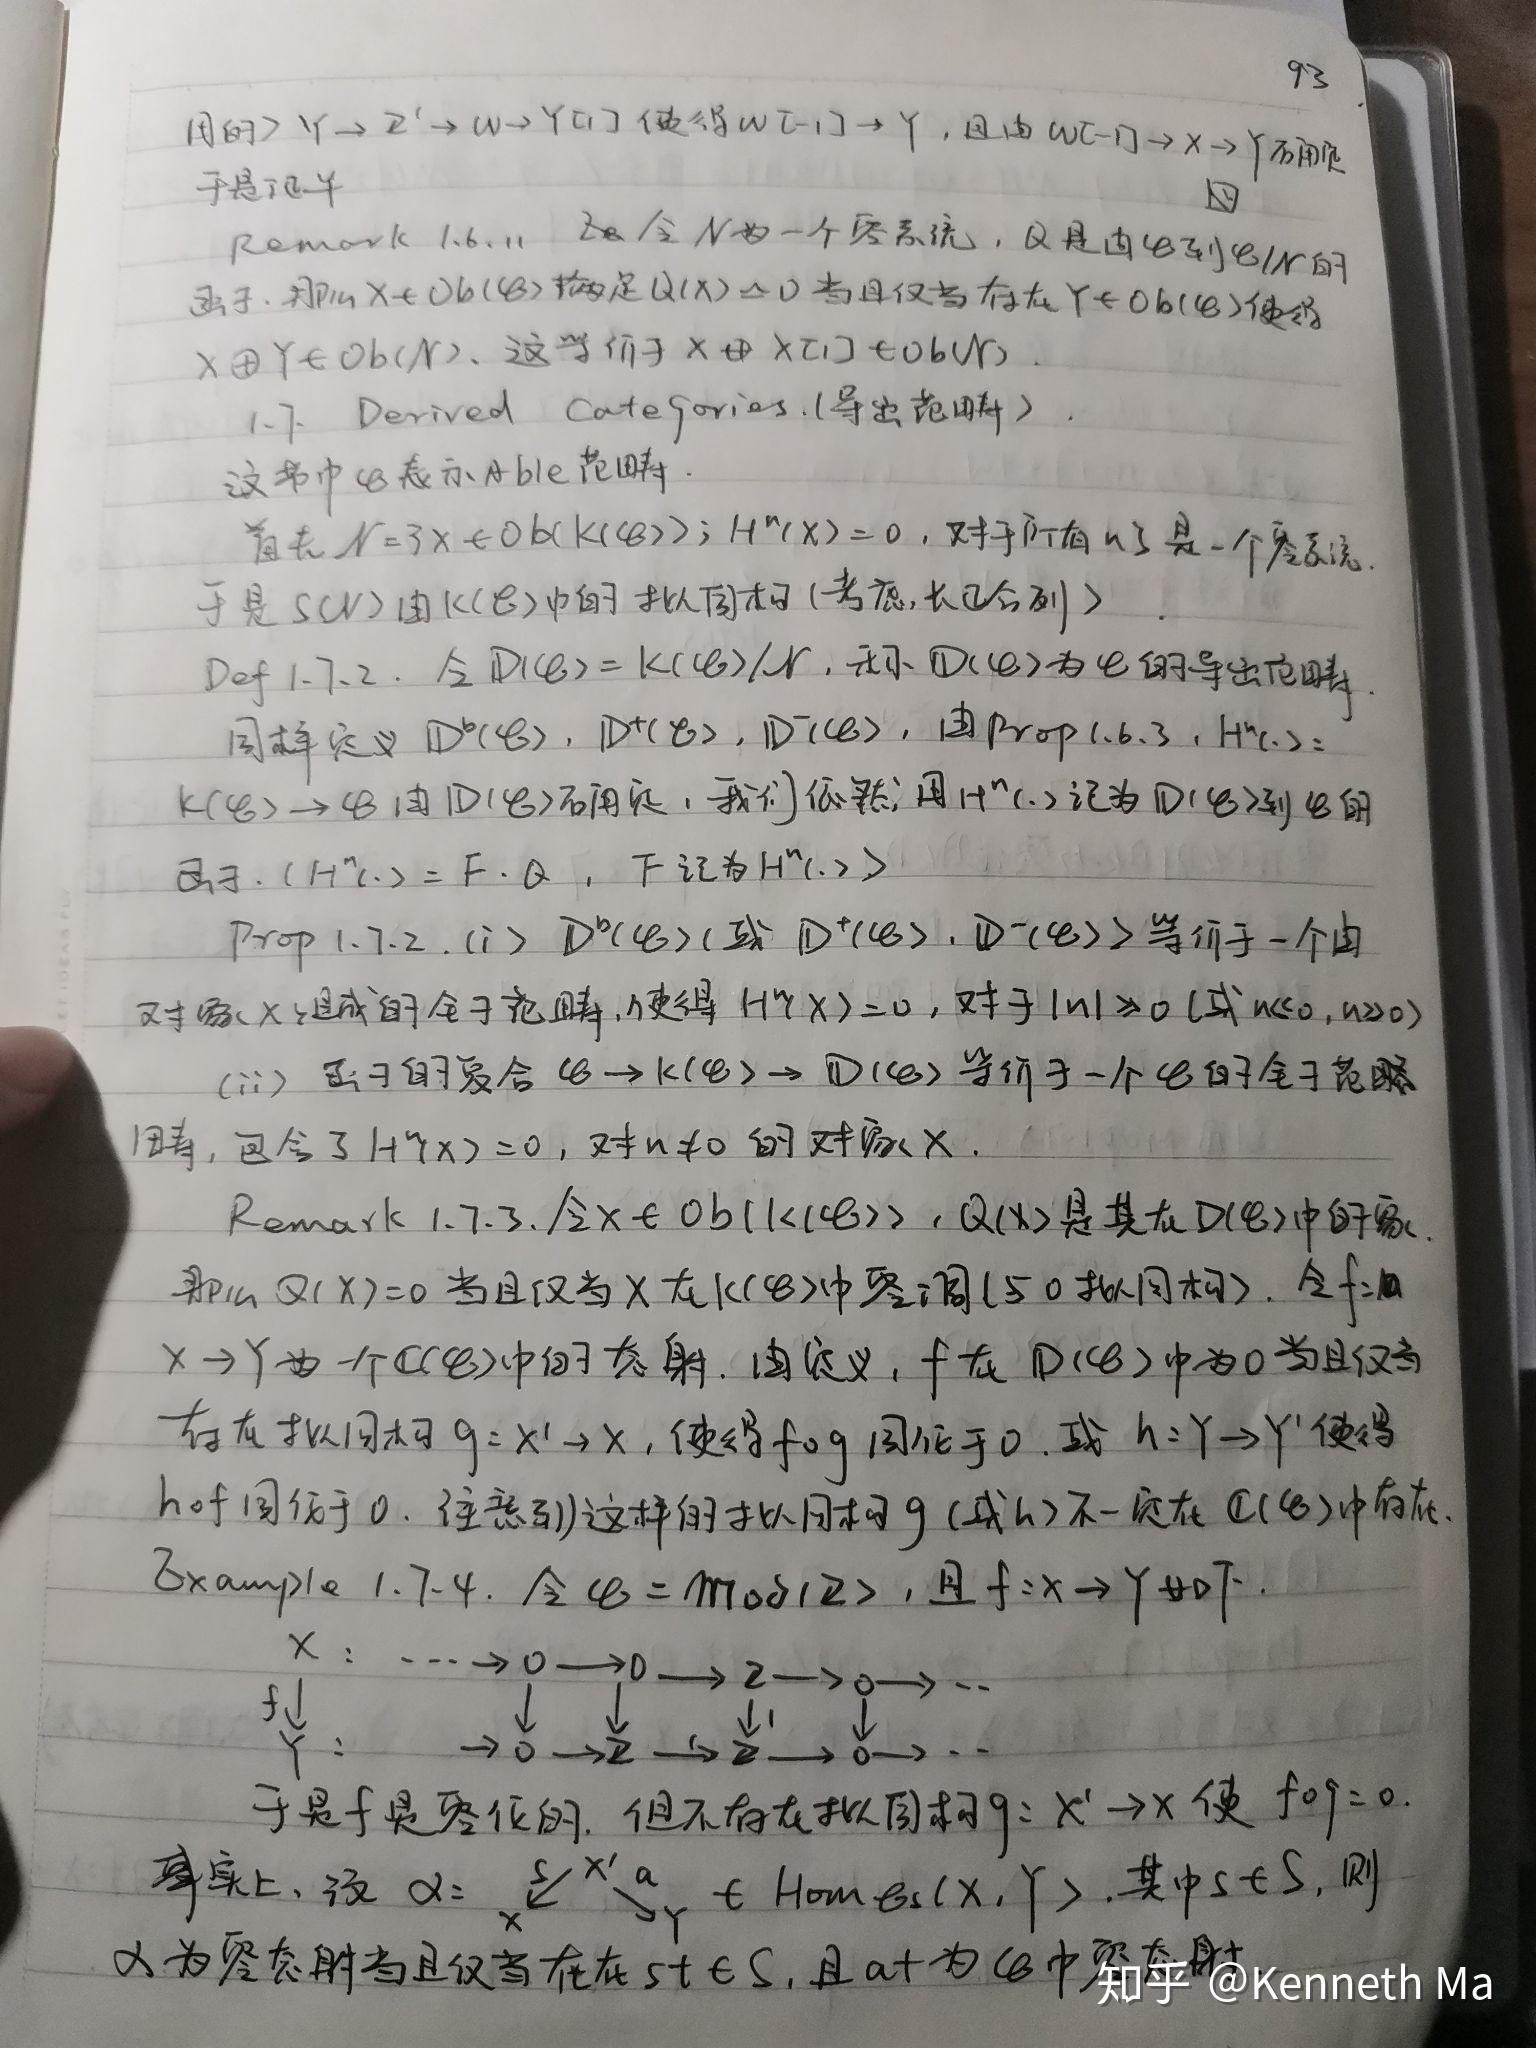 93
用的) Y→Z'→W→Y[1] 使得W[-1]→Y,且由W[-1]→X→Y
于是证毕
Remark 1.6.11 令N为一个零系统,Q是由𝒞到𝒞/N的
函子.那么X∈Ob(𝒞)满足Q(X)≃0当且仅当存在Y∈Ob(𝒞)使得
X⊕Y∈Ob(N)、这等价于X⊕X[1]∈Ob(N).
1.7. Derived Categories.(导出范畴).
这节中𝒞表示Able范畴.
首先N={X∈Ob(K(𝒞)); Hⁿ(X)=0,对于所有n}是一个零系统.
于是S(N)由K(𝒞)中的拟同构(考虑,长正合列)
Def 1.7.2. 令𝔻(𝒞)=K(𝒞)/N,𝔻(𝒞)为𝒞的导出范畴.
同样定义𝔻ᵇ(𝒞),𝔻⁺(𝒞),𝔻⁻(𝒞),由Prop 1.6.3,Hⁿ(.):
K(𝒞)→𝒞由𝔻(𝒞),我们依然用Hⁿ(.)记为𝔻(𝒞)到𝒞的
函子.(Hⁿ(.)=F·Q,F记为Hⁿ(.))
Prop 1.7.2.(i) 𝔻ᵇ(𝒞)(或𝔻⁺(𝒞),𝔻⁻(𝒞))等价于一个由
对象X组成的全子范畴,使得Hⁿ(X)=0,对于|n|≫0(或n≪0,n≫0)
(ii) 函子的复合𝒞→K(𝒞)→𝔻(𝒞)等价于一个𝒞的全子范
畴,包含了Hⁿ(X)=0,对n≠0的对象X.
Remark 1.7.3.令X∈Ob(K(𝒞)),Q(X)是其在D(𝒞)中的象.
那么Q(X)=0当且仅当X在K(𝒞)中零调(与0拟同构).令f:
X→Y为一个ℂ(𝒞)中的态射.由定义,f在𝔻(𝒞)中为0当且仅当
存在拟同构g:X'→X,使得f∘g同伦于0.或h:Y→Y'使得
h∘f同伦于0.注意到这样的拟同构g(或h)不一定在ℂ(𝒞)中存在.
Example 1.7.4. 令𝒞=Mod(Z),且f:X→Y如下.
X: ···→0→0→Z→0→··
f↓ ↓ ↓ ↓1 ↓
Y: →0→Z→¹Z→0→··
于是f是零伦的.但不存在拟同构g:X'→X使f∘g=0.
事实上,设α= X ←s X' →a Y ∈Hom𝒞s(X,Y).其中s∈S,则
α为零态射当且仅当存在st∈S,且at为𝒞中零态射
知乎 @Kenneth Ma